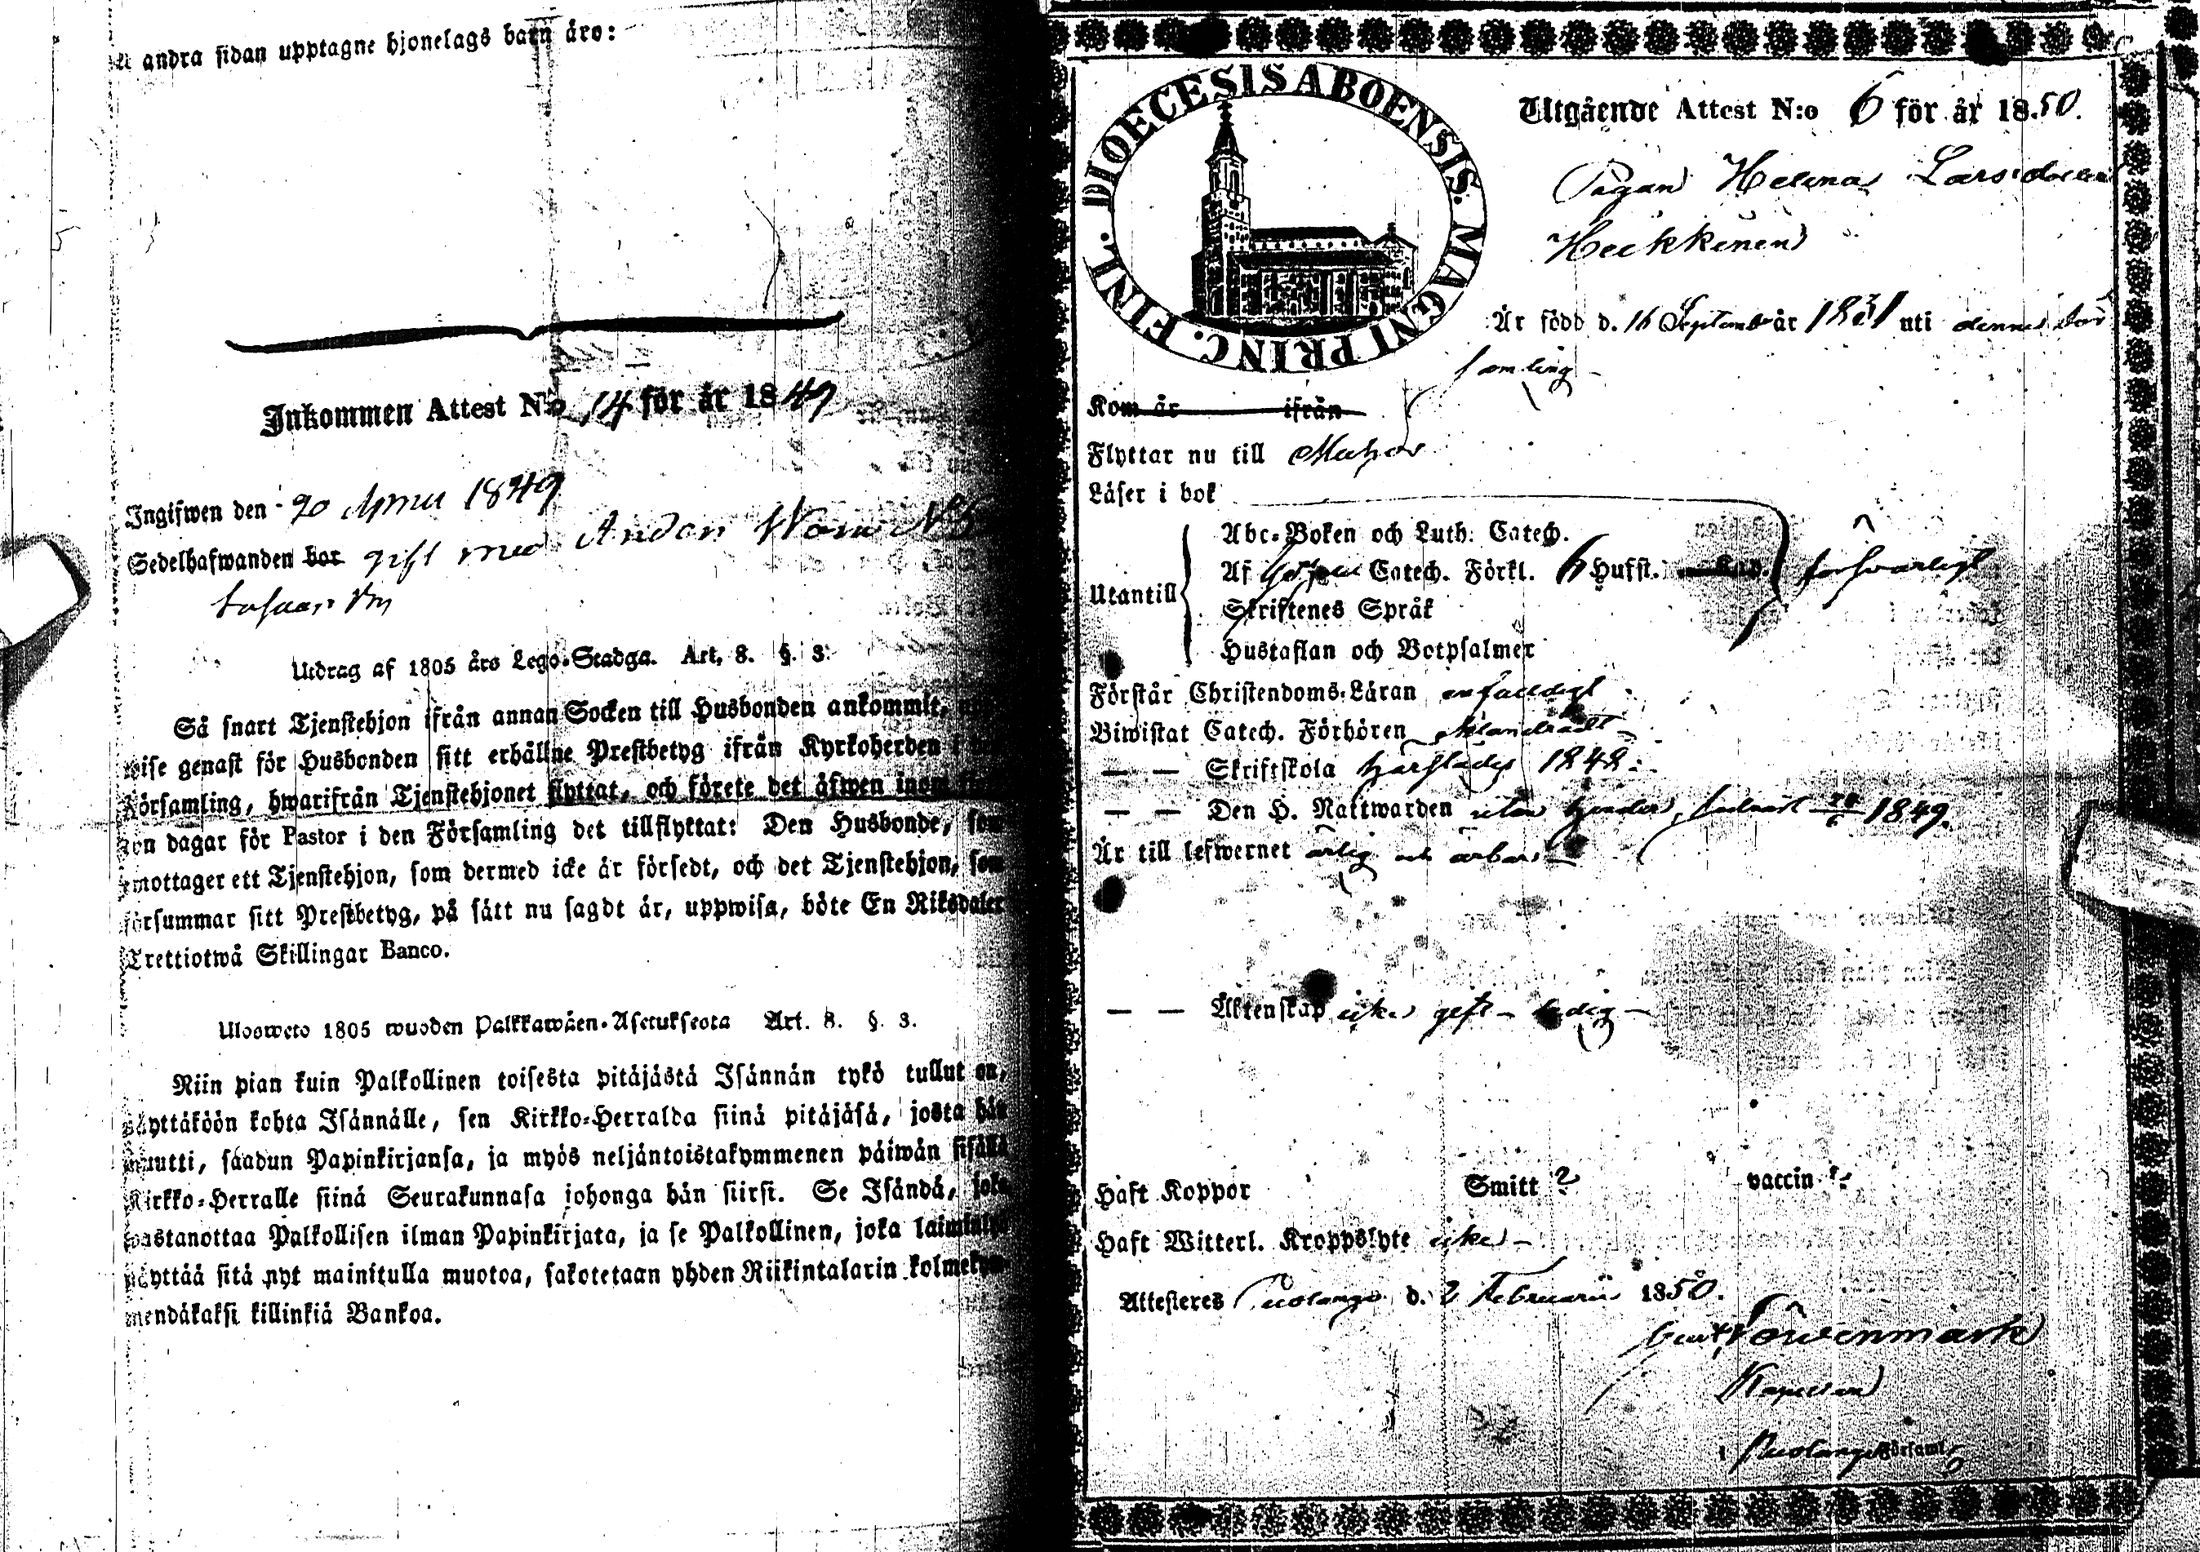 andra sidan upptagne hjonelags barn äro:
Inkommen Attest N:o 14 för år 1849
Ingifwen den 1849
Sedelhafwanden bor gift med
Utdrag af 1805 års Lego-Stadga. Art. 8. §. 3.
Så snart Tjenstehjon ifrån annan Socken till Husbonden ankommit,
wise genast för Husbonden sitt erhållne Prestbetyg ifrån Kyrkoherden i
Församling, hwarifrån Tjenstehjonet flyttat, och förete det äfwen inom
ton dagar för Pastor i den Församling det tillflyttat: Den Husbonde, som
emottager ett Tjenstehjon, som dermed icke är försedt, och det Tjenstehjon, som
försummar sitt Prestbetyg, på sätt nu sagdt är, uppwisa, böte En Riksdaler
Trettiotwå Skillingar Banco.
Ulosweto 1805 wuoden Palkkawäen-Asetuksesta Art. 8. §. 3.
Niin pian kuin Palkollinen toisesta pitäjästä Isännän tykö tullut on,
näyttäköön kohta Isännälle, sen Kirkko-Herralda siinä pitäjäsä, josta hän
muutti, saadun Papinkirjansa, ja myös neljäntoistakymmenen päiwän sisällä
Kirkko-Herralle siinä Seurakunnasa johonga hän siirsi. Se Isändä, joka
wastanottaa Palkollisen ilman Papinkirjata, ja se Palkollinen, joka laiminlyö
näyttää sitä nyt mainitulla muotoa, sakotetaan yhden Riikintalarin kolmekym-
mendäkaksi killinkiä Bankoa.
DIOECESIS ABOENSIS. MAGNI PRINC. FINL.
Utgående Attest N:o 6 för år 1850.
Pigan Helena Larsdotter
Heikkinen
Är född d. 16 September år 1831 uti denna för
samling
Kom år ifrån
Flyttar nu till Muhos
Läser i bok
Abc-Boken och Luth. Catech.
Utantill Af Catech. Förkl. 6 Hufst. försvarligt
Skriftenes Språk
Hustaflan och Botpsalmer
Förstår Christendoms-Läran enfaldigt
Biwistat Catech. Förhören
— — Skriftskola 1848.
— — Den H. Nattwarden 1849.
Är till lefwernet ärlig och ärbar
— — Äktenskap icke gift – ledig –
Haft Koppor Smitt ? vaccin ?
Haft Witterl. Kroppslyte icke –
Attesteras Puolango d. 2 Februarii 1850.
Kapellan
i Puolango Församl.